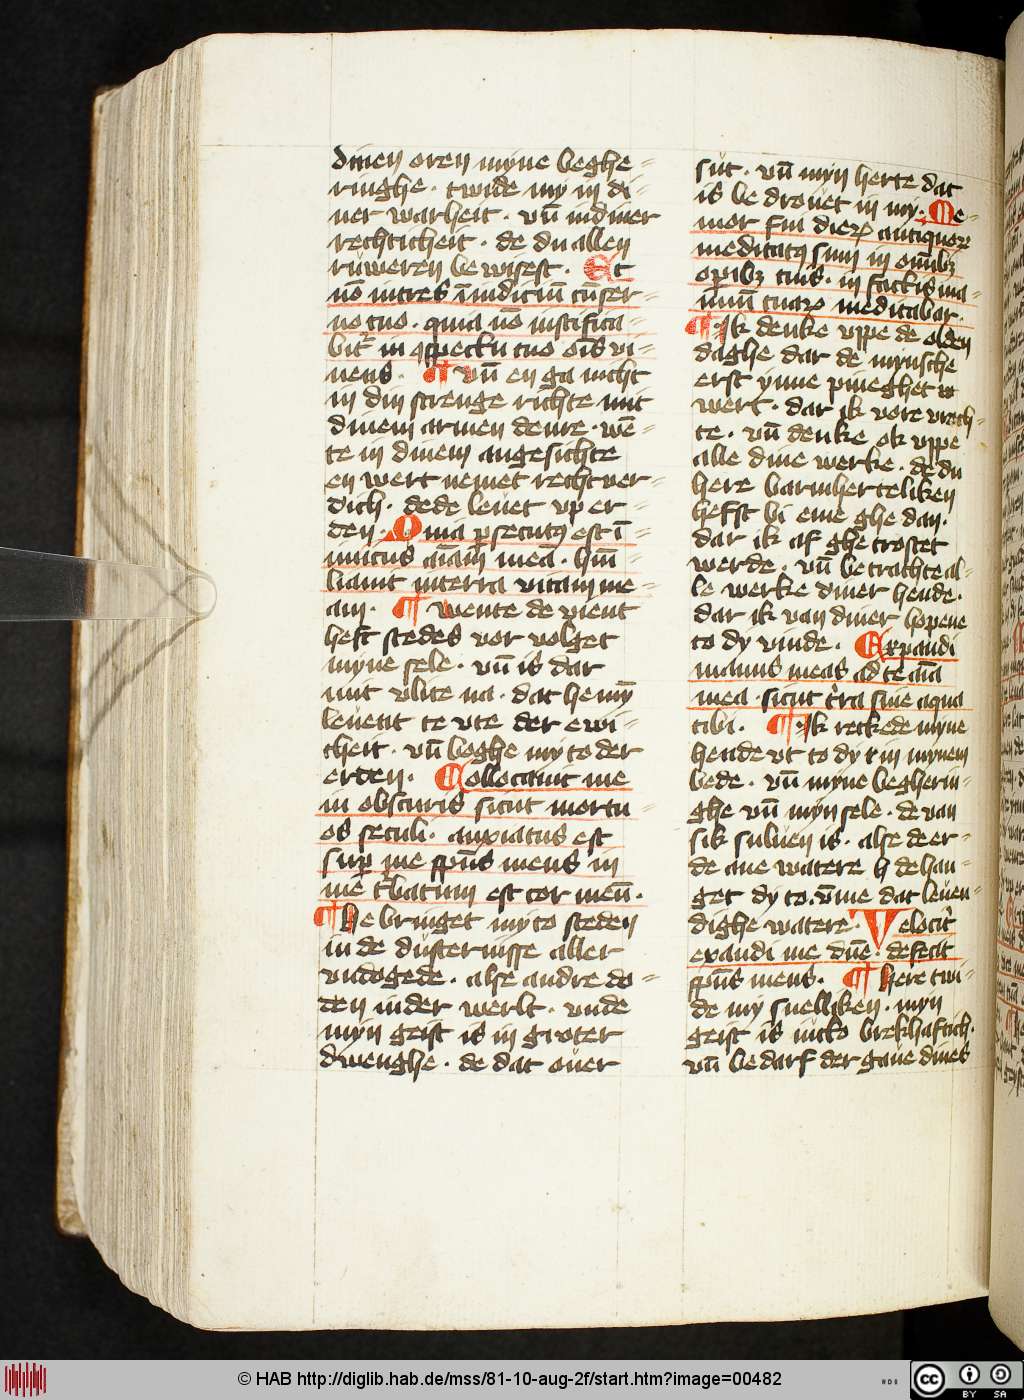 dinen oren myne beghe=
ringhe · twide my in di=
ner warheit · vn̄ in diner
rechticheit · de du allen
ruweren be wisest · Et
nō intres ī iudiciū cū ser=
uo tuo · quia nō iustifica=
bit᷑ in ꝯspectu tuo oīs vi=
uens · ¶ vn̄ en ga nicht
in din strenge richte mit
dinem armen denre · wē=
te in dinem angesichte
en wert nemet rechtuer=
dich · de de leuet vp er=
den · Quia ꝑsecutꝯ est ī=
imicus aīam meā · hūi=
liauit in terra vitam me=
am · ¶ wente de vient
heft stedes vor volget
myne sele · vn̄ is dar
mit vlite na · dat he my
leuent te vte der ewi=
cheit · vn̄ boghe my to der
erden · Collocauit me
in obscuris sicut mortu=
os seculi · anxiatus est
suꝑ me sp̄us meus in
me t᷑batum est cor meū ·
¶ He bringet my to steden
in de dusternisse aller
vndogede · alse andre do=
den in der werlt · vnde
myn geist is in groter
dwenghe · de dat ouer
sut · vn̄ myn herte dat
is be drouet in my · Me=
mor fui dieꝝ antiquoꝝ
meditatꝯ sum in om̄ibꝫ
oꝑibꝫ tuis · in factis ma=
nuū tuaꝝ meditabar ·
¶ Ik denke vppe de olden
daghe dar de mynsche
erst ynne
wert · dar ik vore vruch=
te · vn̄ denke ok vppe
alle dine werke · de du
here barmherteliken
hefst bi eme ghe dan ·
dar ik af ghe trostet
werde · vn̄ betrachte al=
le werke diner hende ·
dar ik van diner hopene
to dy vinde · Expandi
manus meas ad te aīa
mea · sicut t᷑ra sine aqua
tibi · ¶ Ik reckede myne
hende vt to dy in mynem
bede · vn̄ myne begherin=
ghe vn̄ myn sele · de van
sik suluen is · alse de er=
de ane watere de han=
get dy to · vm̄e dat leuen=
dighe watere · Velocit᷑
exaudi me dn̄e · defecit
sp̄us meus · ¶ Here twi=
de my snelliken · myn
geist is nicko brekhaftich ·
vn̄ bedarf der gaue dines
© HAB http://diglib.hab.de/mss/81-10-aug-2f/start.htm?image=00482
cc BY SA